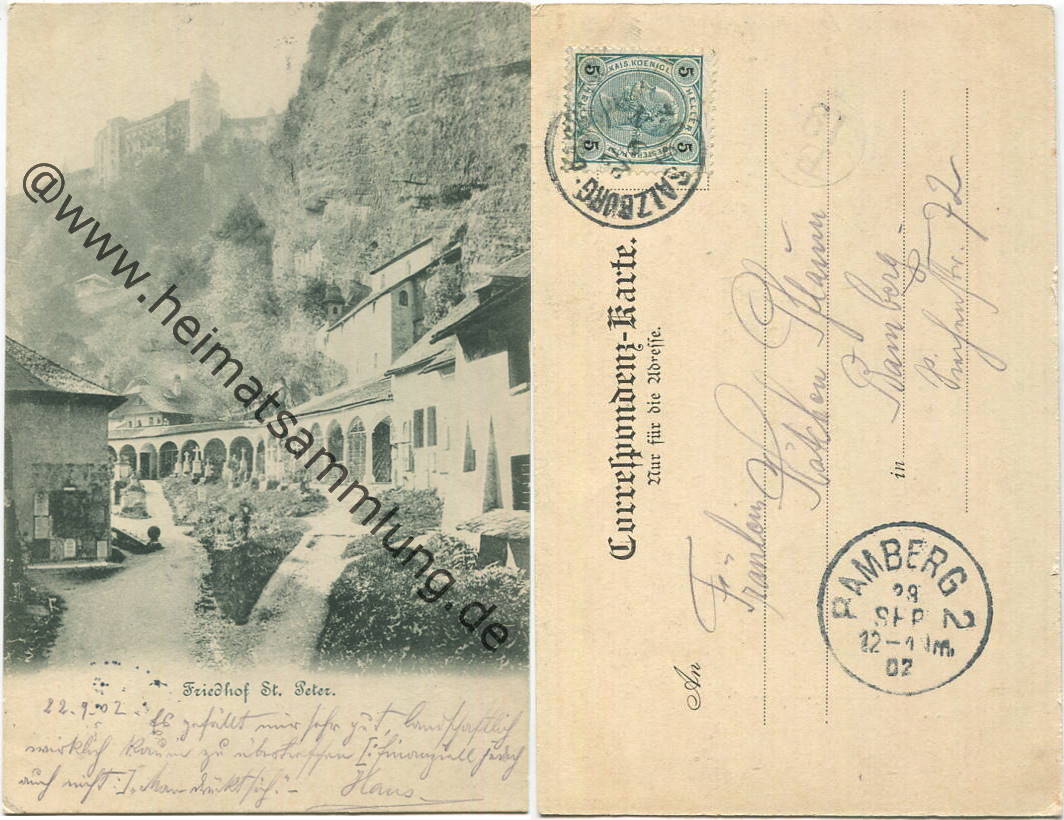 @www.heimatsammlung.de
Friedhof St. Peter.
22.9.02. Es gefällt mir sehr gut, landschaftlich
wirklich kaum zu übertreffen [: finanziell jedoch
auch nicht :]. Man drückt sich! -
Hans
KAIS. KOENIGL.
5 5
HELLER HELLER
5 5
SALZBURG
Correspondenz-Karte.
Nur für die Adresse.
An
Fräulein
Käthchen Pflaum
in Bamberg
72
BAMBERG 2
28
SEP
12-1 Nm.
02